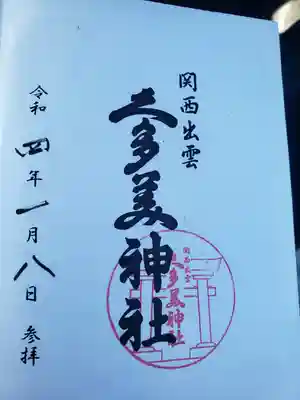 関西出雲
久多美神社
令和四年一月八日 参拝
関西出雲
久多美神社